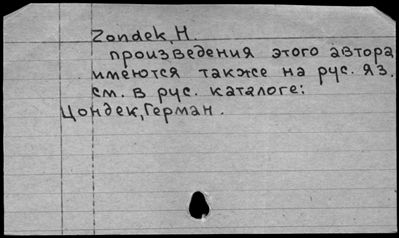 Zondek, H.
произведения этого автора
имеются также на рус. яз.
см. в рус. каталоге:
Цондек, Герман.